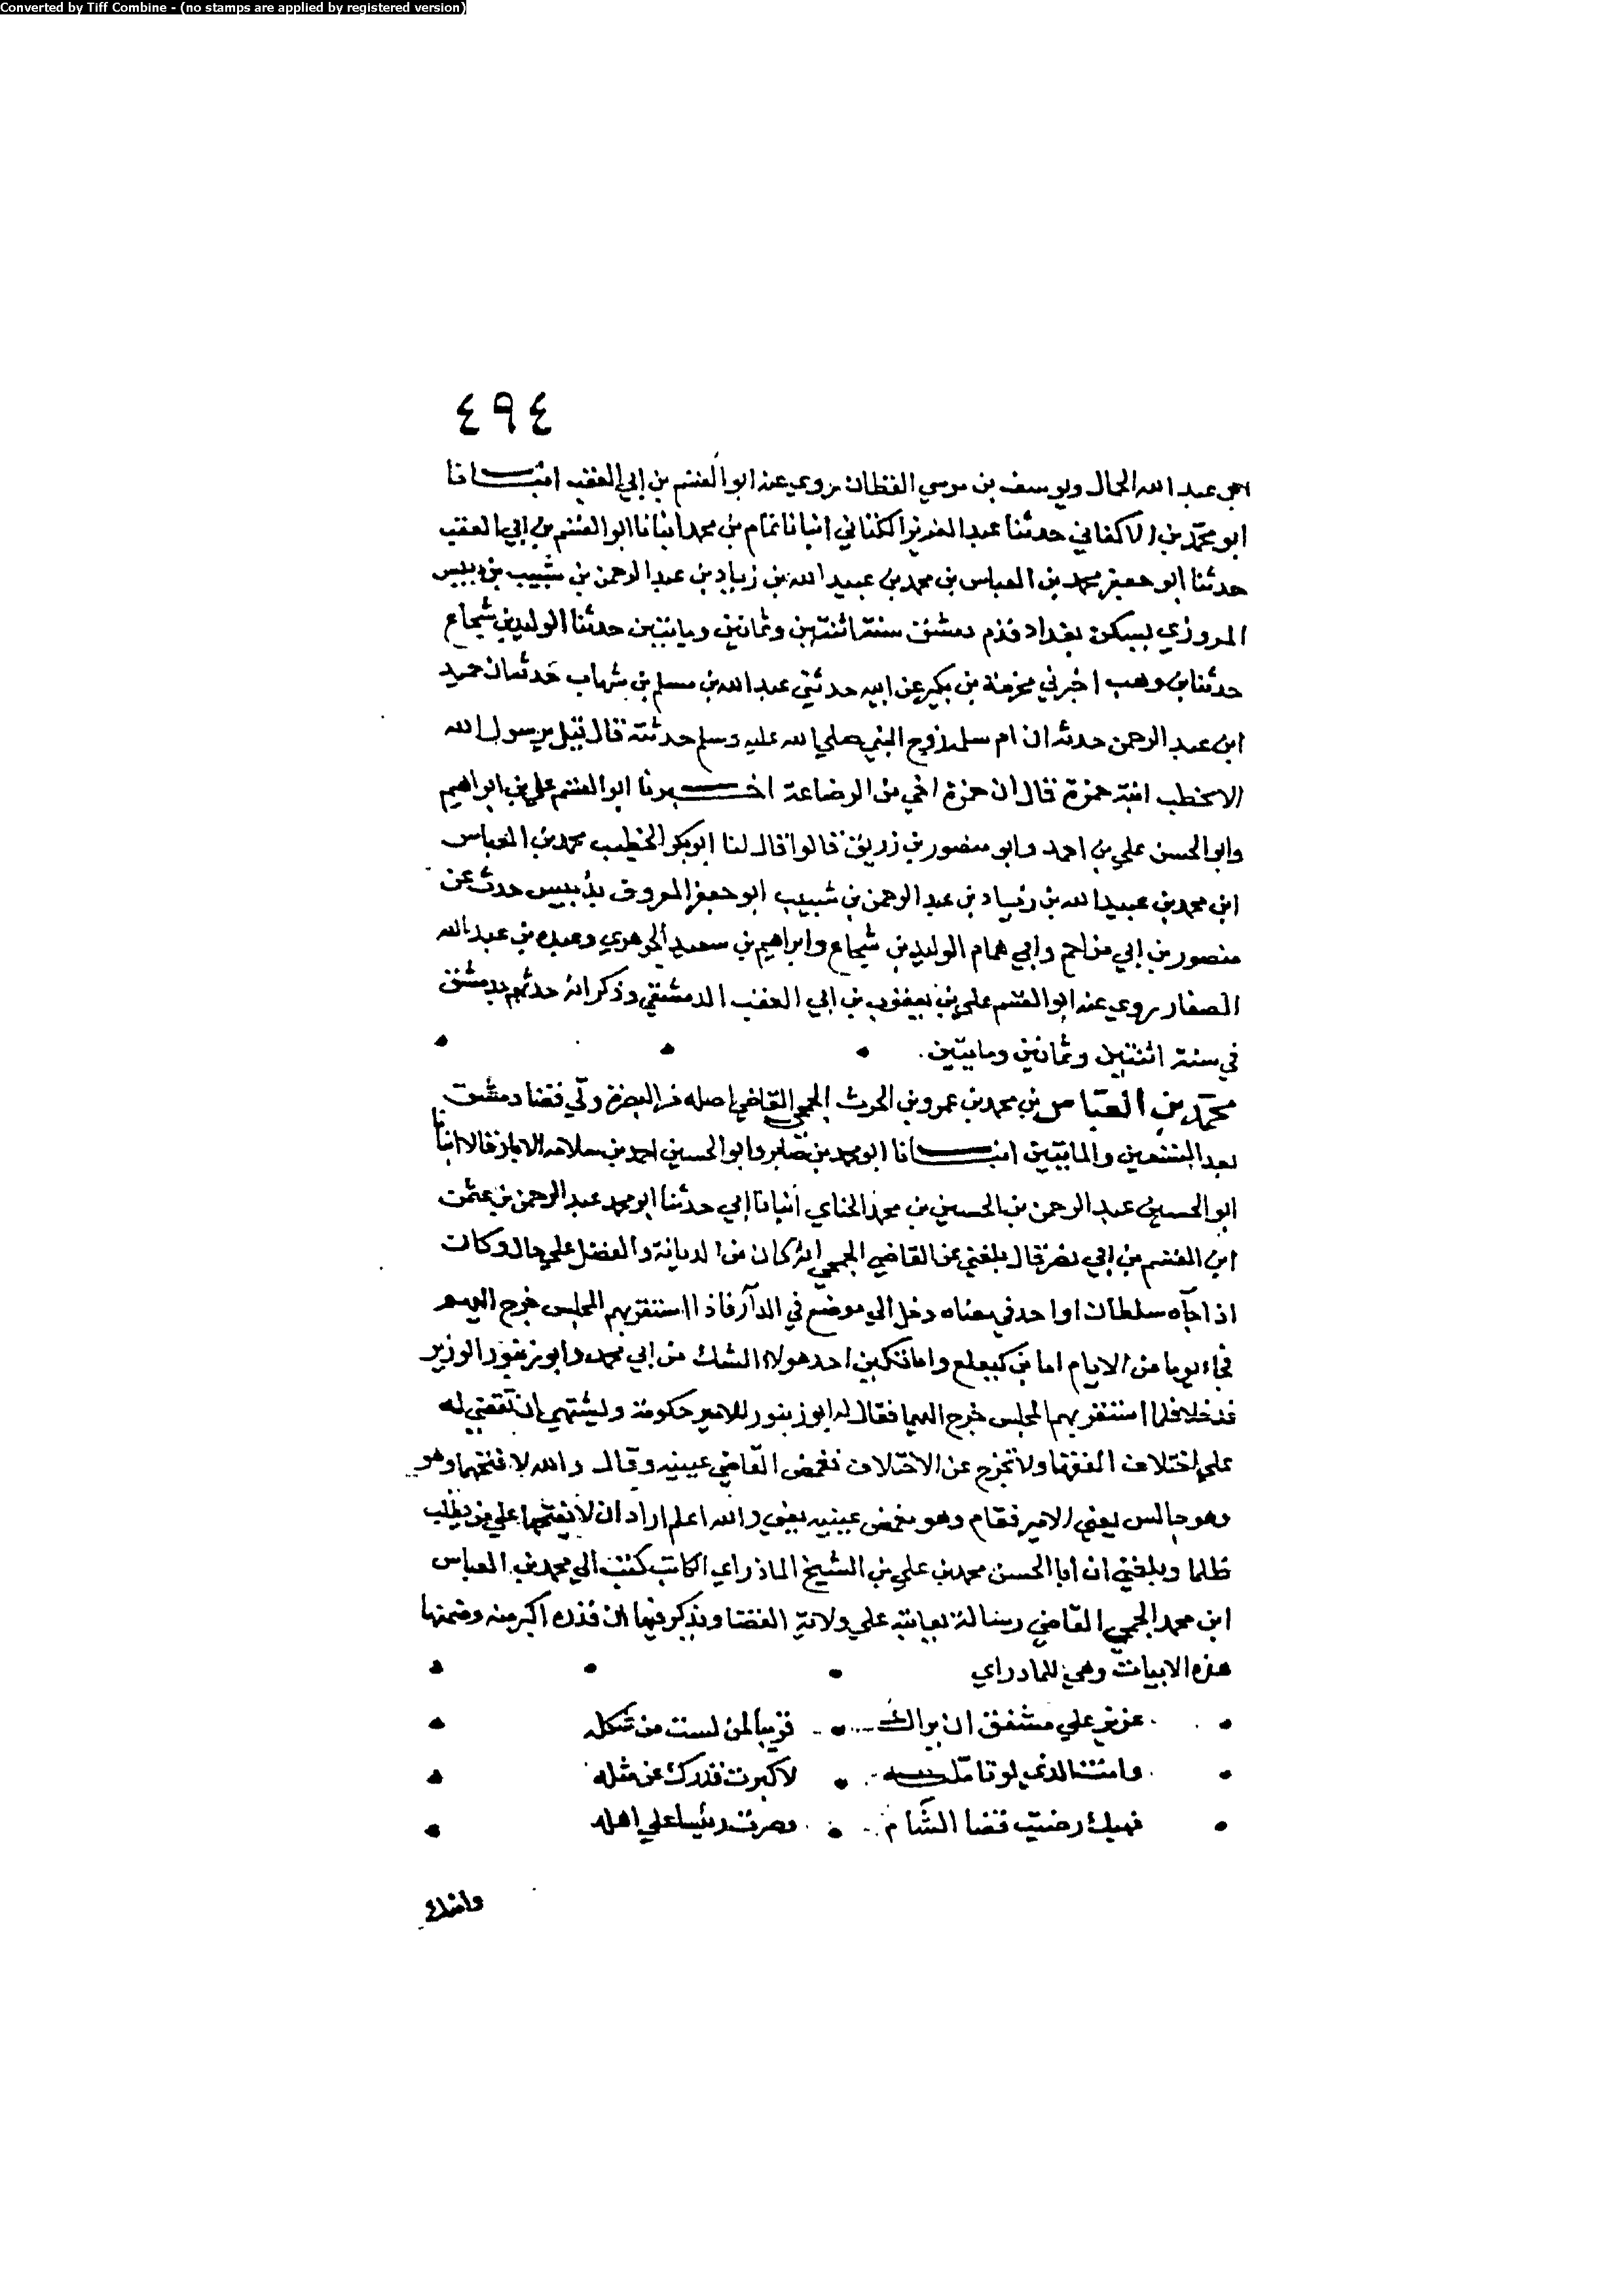 Converted by Tiff Combine - (no stamps are applied by registered version)
٤٩٤
عبد الله الحمال ويوسف بن موسي القطان روي عنه ابو القسم بن ابي العقب انبـــانا
ابو محمد بن الاكفاني حدثنا عبد العزيز الكتاني انبانا تمام بن محمد انبانا ابو القسم بن ابي العقب
حدثنا ابو جعفر محمد بن العباس بن محمد بن عبيد الله بن زياد بن عبد الرحمن بن شبيب بن دبيس
المروزي يسكن بغداد قدم دمشق سنة اثنتين وثمانين ومايتين حدثنا الوليد بن شجاع
حدثنا بن وهب اخبرني مخرمة بن بكير عن ابيه حدثني عبد الله بن مسلم بن شهاب حدثنا ان حميد
ابن عبد الرحمن حدثه ان ام سلمة زوج النبي صلي الله عليه وسلم حدثته قال قيل يرسول الله
الا تخطب ابنة حمزة قال ان حمزة اخي من الرضاعة اخـــبرنا ابو القسم علي بن ابراهيم
وابو الحسن علي بن احمد وابو منصور بن زريق قالوا قال لنا ابو بكر الخطيب محمد بن العباس
ابن محمد بن عبيد الله بن زياد بن عبد الرحمن بن شبيب ابو جعفر المعروف بدبيس حدث عن
منصور بن ابي مزاحم وابي همام الوليد بن شجاع وابراهيم بن سعيد الجوهري وعبده بن عبد الله
الصفار روي عنه ابو القسم علي بن يعقوب بن ابي العقب الدمشقي وذكر انه حدثهم بدمشق
في سنة اثنتين وثمانين ومايتين.
محمد بن العباس بن محمد بن عمرو بن الحرث الجمحي القاضي اصله من البصرة ولي قضا دمشق
بعد التسعين والمايتين انبـــانا ابو محمد بن صابر وابو الحسين احمد بن سلامه الابار قالا انبانا
ابو الحسين عبد الرحمن بن الحسين بن محمد الحناي انبانا ابي حدثنا ابو محمد عبد الرحمن بن عثمن
ابن القسم بن ابي نصر قال بلغني عن القاضي الجمحي انه كان من الديانة والفضل علي حال وكان
اذا جآه سلطان او احد في معناه دخل الي موضع في الدار فاذا استقر بهم المجلس خرج اليهم
فجاء يوما من الايام اما بن كيغلغ واما تكين احد هولا الشك من ابي محمد وابو زنبور الوزير
فدخلا فلما استقر بهم المجلس خرج اليهما فقال له ابو زنبور للامير حكومة ويشتهي ان تقضي له
علي اختلاف الفقها ولا تخرج عن الاختلاف فغمض القاضي عينيه وقال والله لا فتحتهما وهو
وهو جالس يعني الامير فقام وهو مغمض عينيه يعني والله اعلم اراد ان لا يفتحهما علي من يطلب
ظلما وبلغني ان ابا الحسن محمد بن علي بن الشيخ الماذراي الكاتب كتب الي محمد بن العباس
ابن محمد الجمحي القاضي رسالة يعاتبه علي ولاية القضا ويذكر فيها ان قدره اكبر منه وضمنها
هذه الابيات وهي للمادراي
عزيز علي مشفق ان يراك قريبا لمن لست من شكله
وانت الذي لو تاملتـــه لاكبرت قدرك عن مثله
فهبك رضيت قضا الشام وصرت رئيسا علي اهله